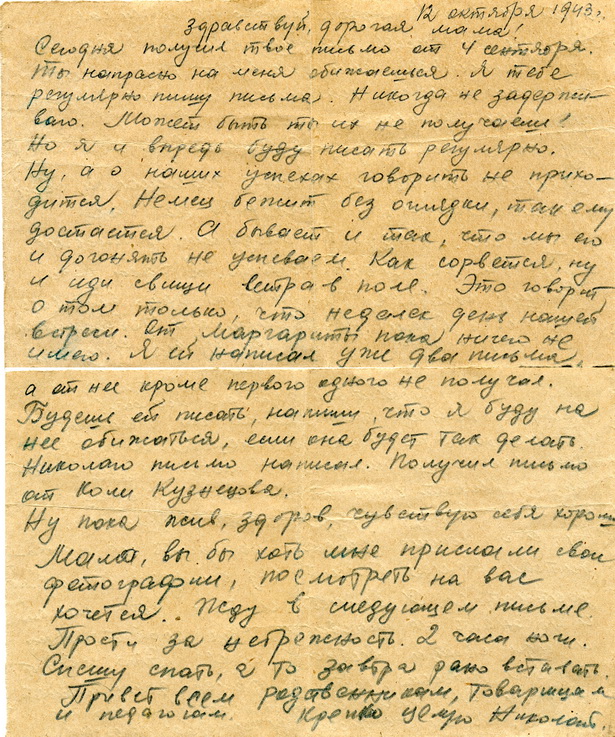 12 октября 1943 г.
Здравствуй, дорогая мама!
Сегодня получил твое письмо от 4 сентября.
Ты напрасно на меня обижаешься. Я тебе
регулярно пишу письма. Никогда не задержи-
ваю. Может быть ты их не получаешь!
Но я и впредь буду писать регулярно.
Ну, а о наших успехах говорить не прихо-
дится. Немец бежит без оглядки, так ему
достается. А бывает и так, что мы его
и догонять не успеваем. Как сорвется, ну
и иди свищи ветра в поле. Это говорит
о том только, что недалек день нашей
встречи. От Маргариты пока ничего не
имею. Я ей написал уже два письма,
а от нее кроме первого одного не получал.
Будешь ей писать, напиши, что я буду на
нее обижаться, если она будет так делать.
Николаю письмо написал. Получил письмо
от Коли Кузнецова.
Ну пока жив, здоров, чувствую себя хорошо
Мама, вы бы хоть мне прислали свои
фотографии, посмотреть на вас
хочется. Жду в следующем письме.
Прости за небрежность. 2 часа ночи.
Спешу спать, а то завтра рано вставать.
Привет всем родственникам, товарищам
и педагогам. Крепко целую Николай.